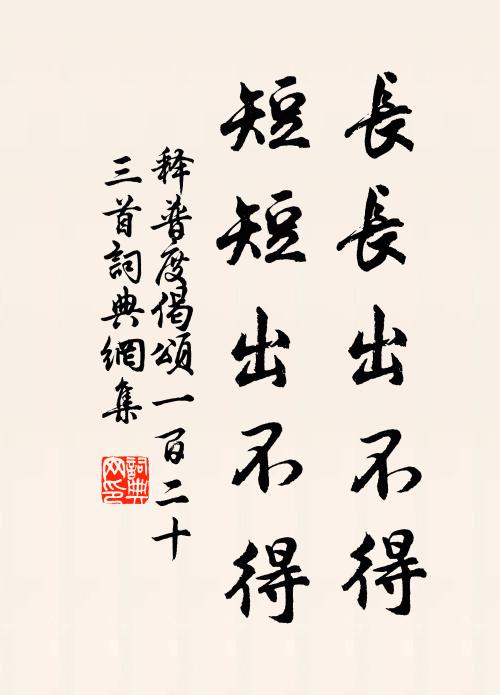 長長出不得
短短出不得
释普度偈頌一百二十
三首詞典網集
詞典
网印